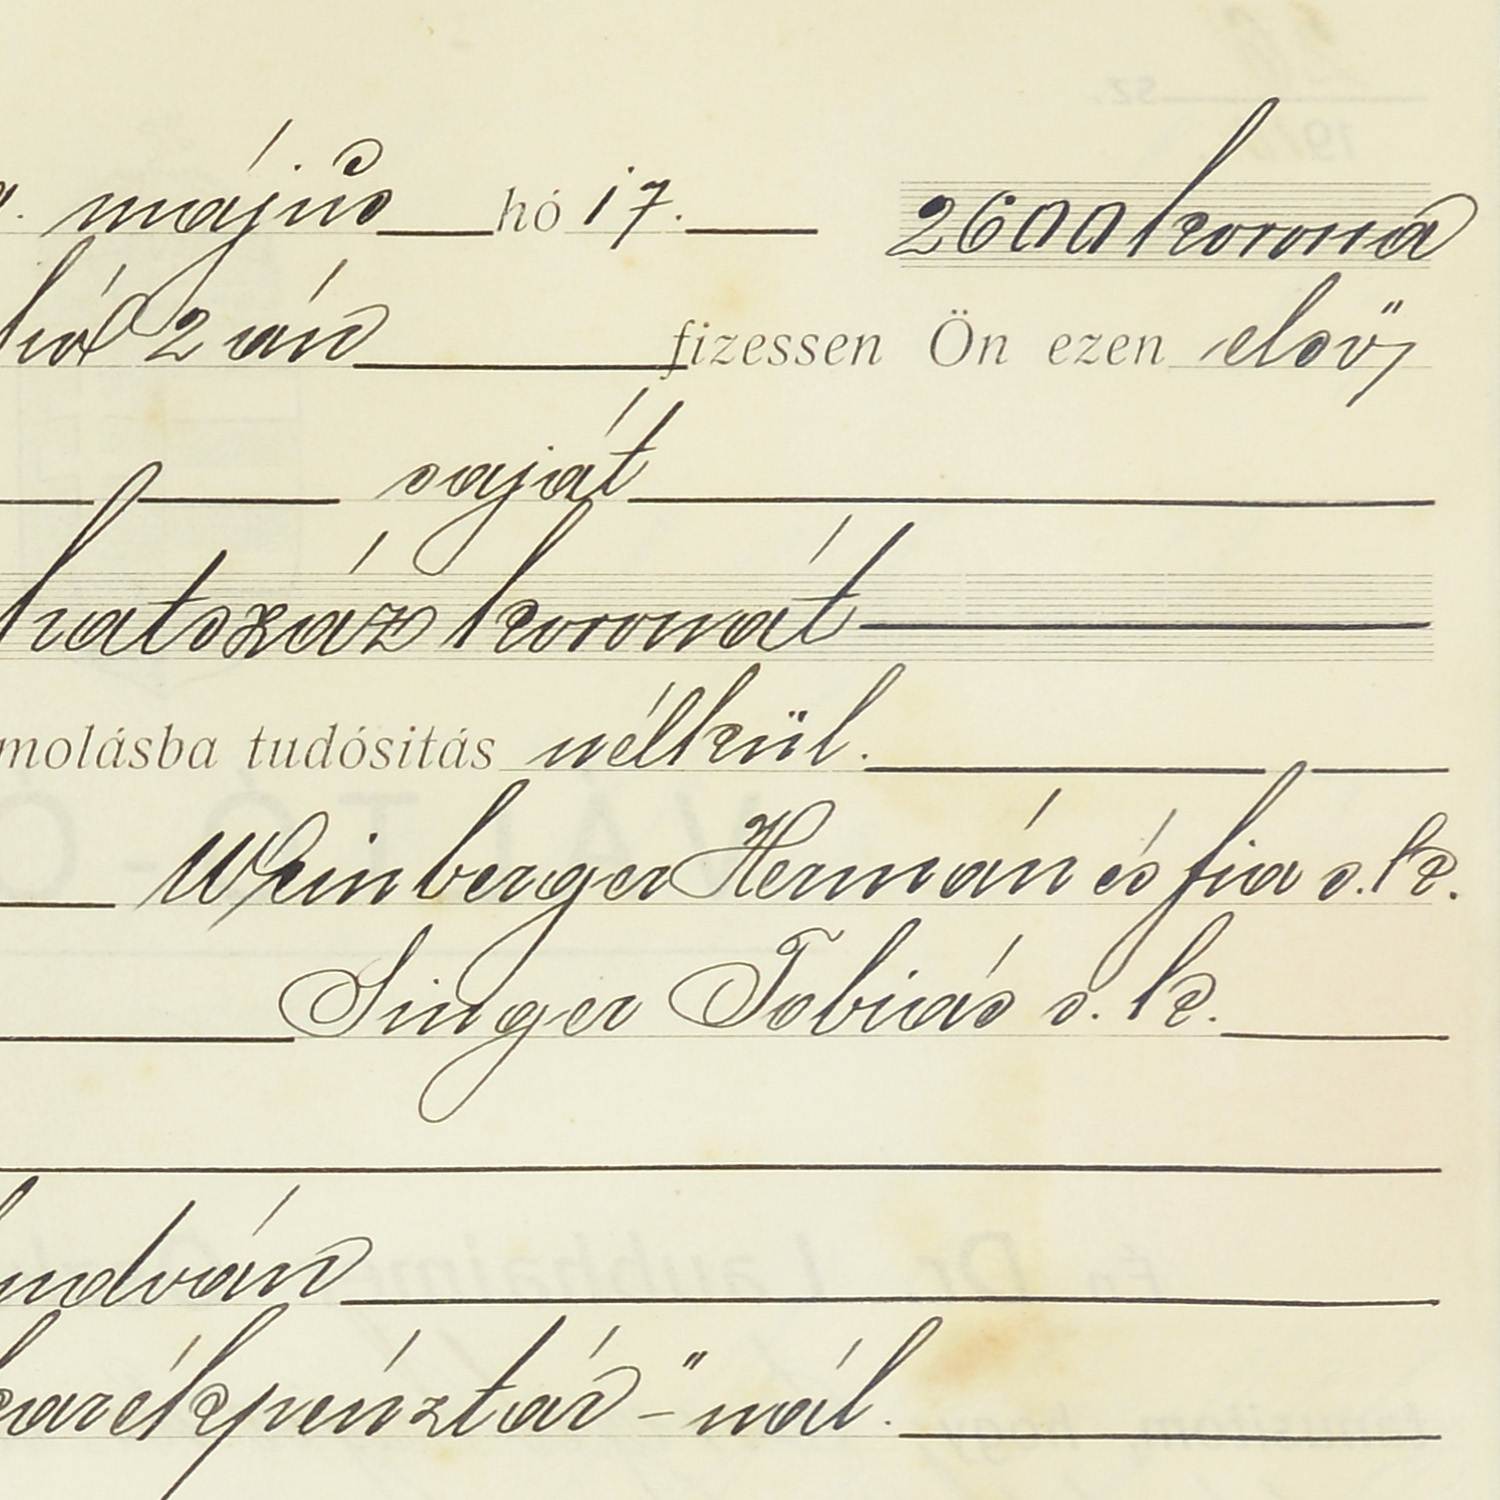 május hó 17. 2600 korona
hó 2 án fizessen Ön ezen első
saját
hatszáz koronát
molásba tudósitás nélkül.
Weinberger Hermán és fia s. k.
Singer Tobiás s. k.
udván
karékpénztár-" nál.